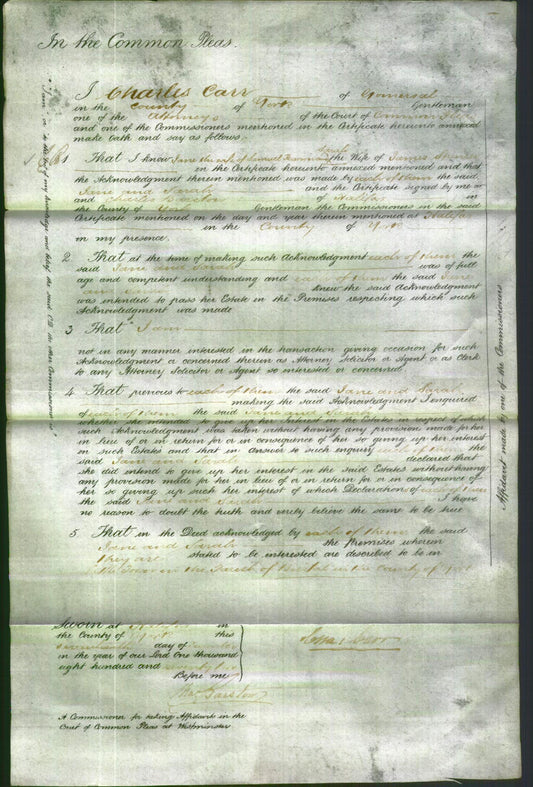 In the Common Pleas.
I Charles Carr of Gomersal
in the County of York Gentleman
one of the Attorneys of the Court of Common Pleas
and one of the Commissioners mentioned in the Certificate hereunto annexed
make oath and say as follows:
1 That I know Jane the wife of the Wife of James
in the Certificate hereunto annexed mentioned and that
the Acknowledgment therein mentioned was made by each of them the said
Jane and Sarah and the Certificate signed by me
and of Halifax
in the County of York Gentleman the Commissioners in the said
Certificate mentioned on the day and year therein mentioned at Halifax
in the County of York
in my presence.
2 That at the time of making such Acknowledgment each of them the
said Jane and Sarah was of full
age and competent understanding and each of them the said Jane
and Sarah knew the said Acknowledgment
was intended to pass her Estate in the Premises respecting which such
Acknowledgment was made
3 That I am
not in any manner interested in the transaction giving occasion for such
Acknowledgment or concerned therein as Attorney Solicitor or Agent or as Clerk
to any Attorney Solicitor or Agent so interested or concerned.
4 That previous to each of them the said Jane and Sarah
making the said Acknowledgment I inquired
of each of them the said Jane and Sarah
whether she intended to give up her Interest in the Estates in respect of which
such Acknowledgment was taken without having any provision made for her
in lieu of or in return for or in consequence of her so giving up her interest
in such Estates and that in answer to such inquiry each of them the
said Jane and Sarah declared that
she did intend to give up her interest in the said Estates without having
any provision made for her in lieu of or in return for or in consequence of
her so giving up such her interest of which Declaration of each of them
the said Jane and Sarah I have
no reason to doubt the truth and verily believe the same to be true
5 That in the Deed acknowledged by each of them the said
Jane and Sarah the Premises wherein
they are stated to be interested are described to be in
in the Parish of in the County of York
Sworn at in
the County of York this
day of
in the year of our Lord One thousand
eight hundred and
Before me
A Commissioner for taking Affidavits in the
Court of Common Pleas at Westminster
Affidavit made by one of the Commissioners